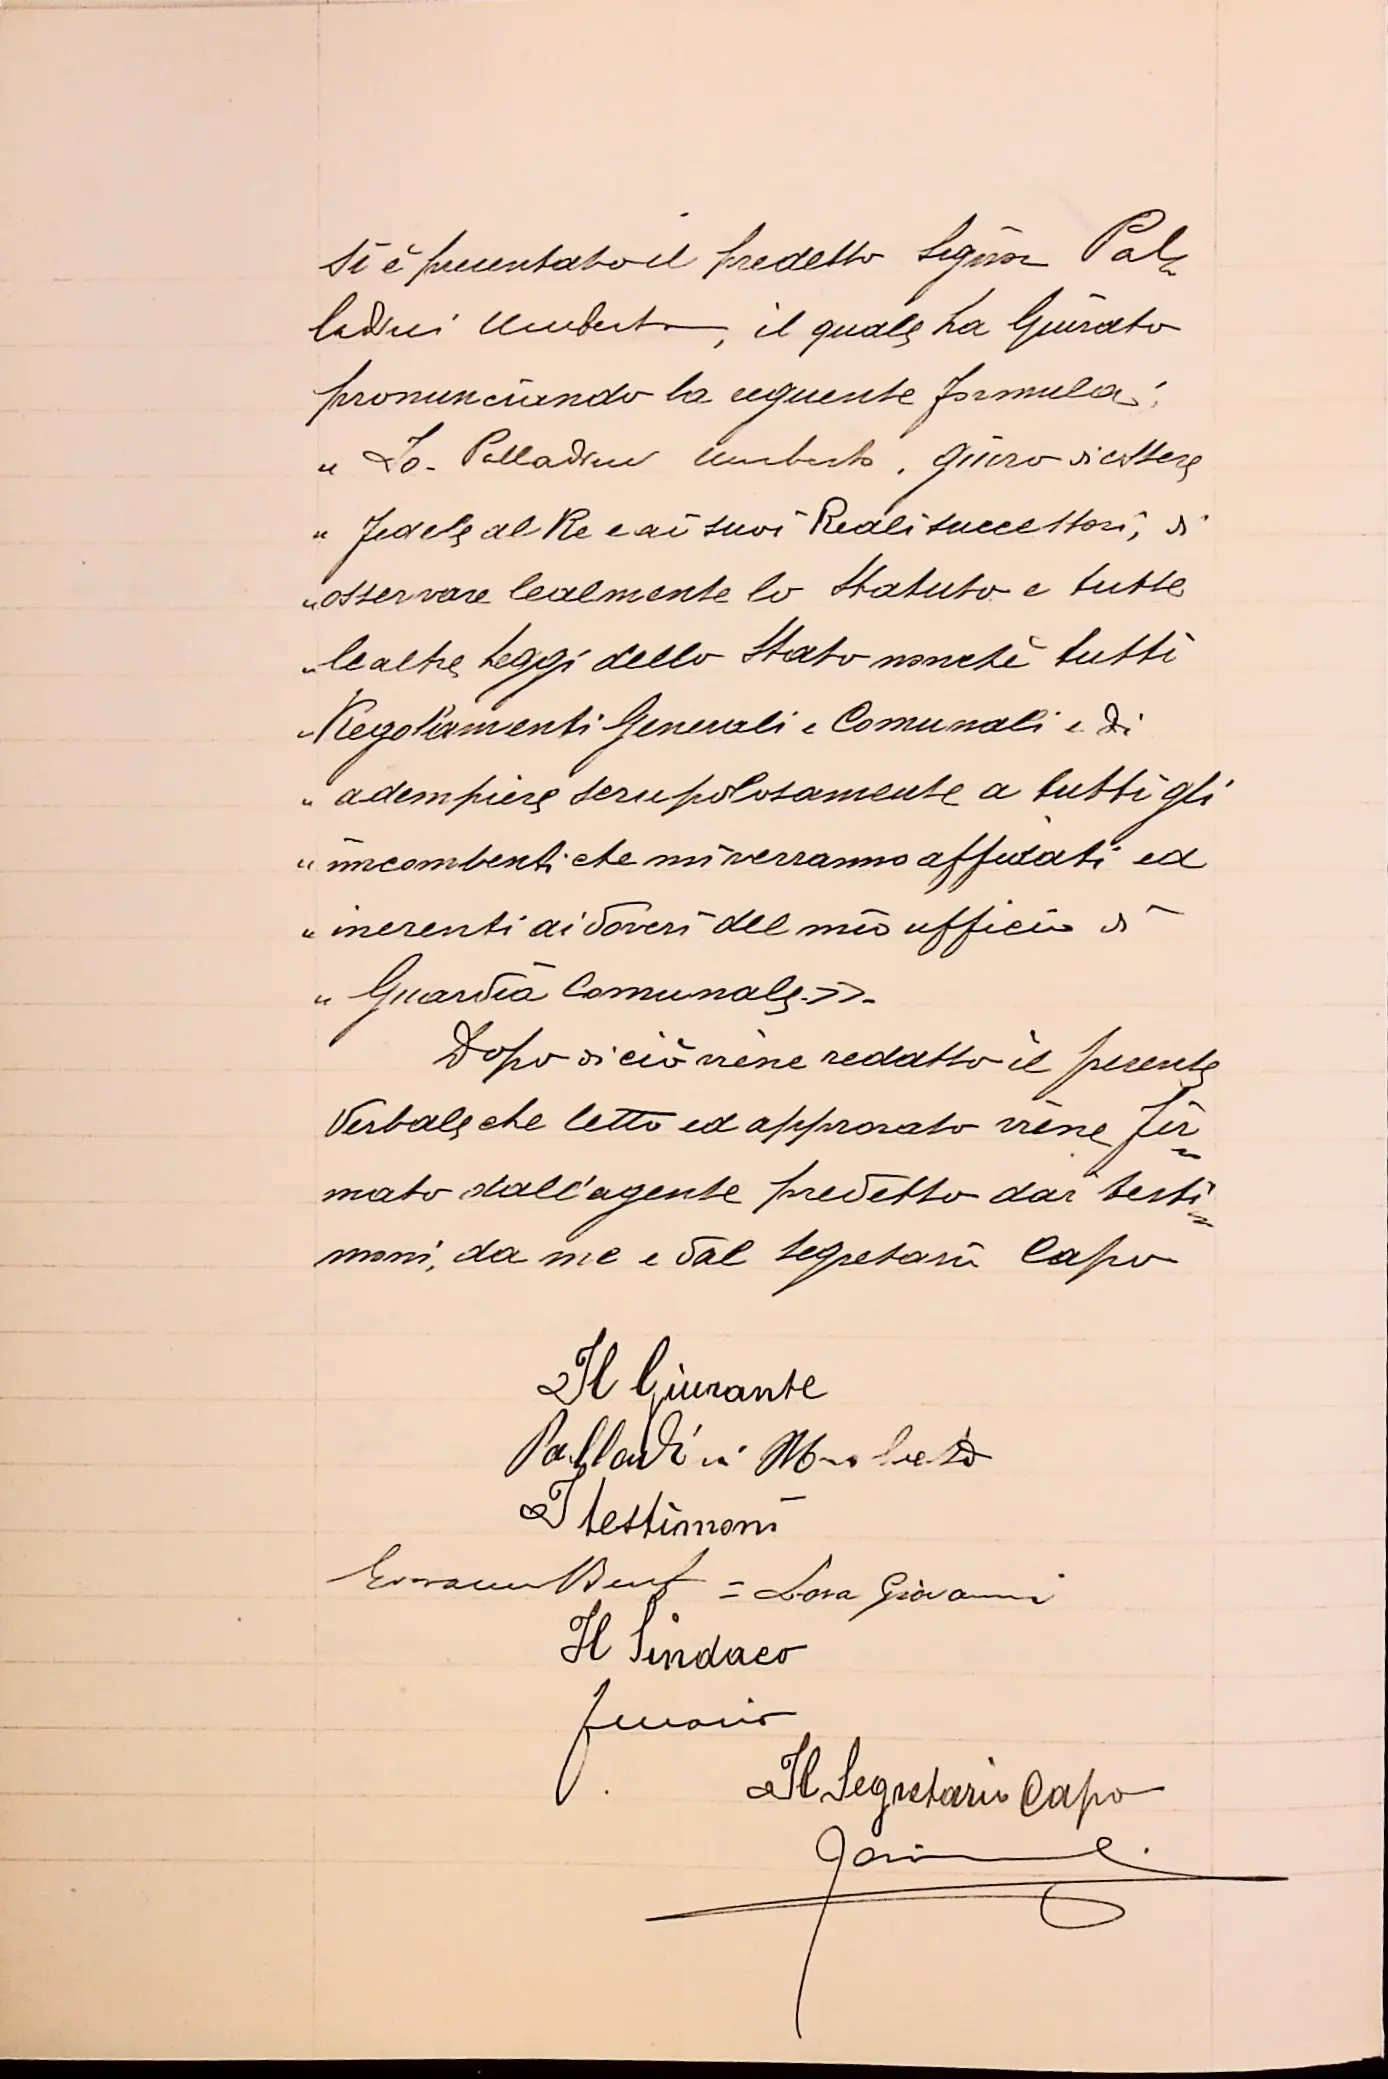 si è presentato il predetto Signor Pal-
ladini Umberto, il quale ha Giurato
pronunciando la seguente formula:
" Io Palladini Umberto, giuro di essere
" fedele al Re e ai suoi Reali successori, di
" osservare lealmente lo Statuto e tutte
" le altre leggi dello Stato nonchè tutti
" Regolamenti Generali e Comunali e di
" adempiere scrupolosamente a tutti gli
" incombenti che mi verranno affidati ed
" inerenti ai doveri del mio ufficio di
" Guardia Comunale >>.
Dopo di ciò viene redatto il presente
Verbale che letto ed approvato viene fir=
mato dall'agente predetto dai testi=
moni, da me e dal segretario Capo
Il Giurante
Palladini Umberto
I testimoni
= Giovanni
Il Sindaco
Il Segretario Capo